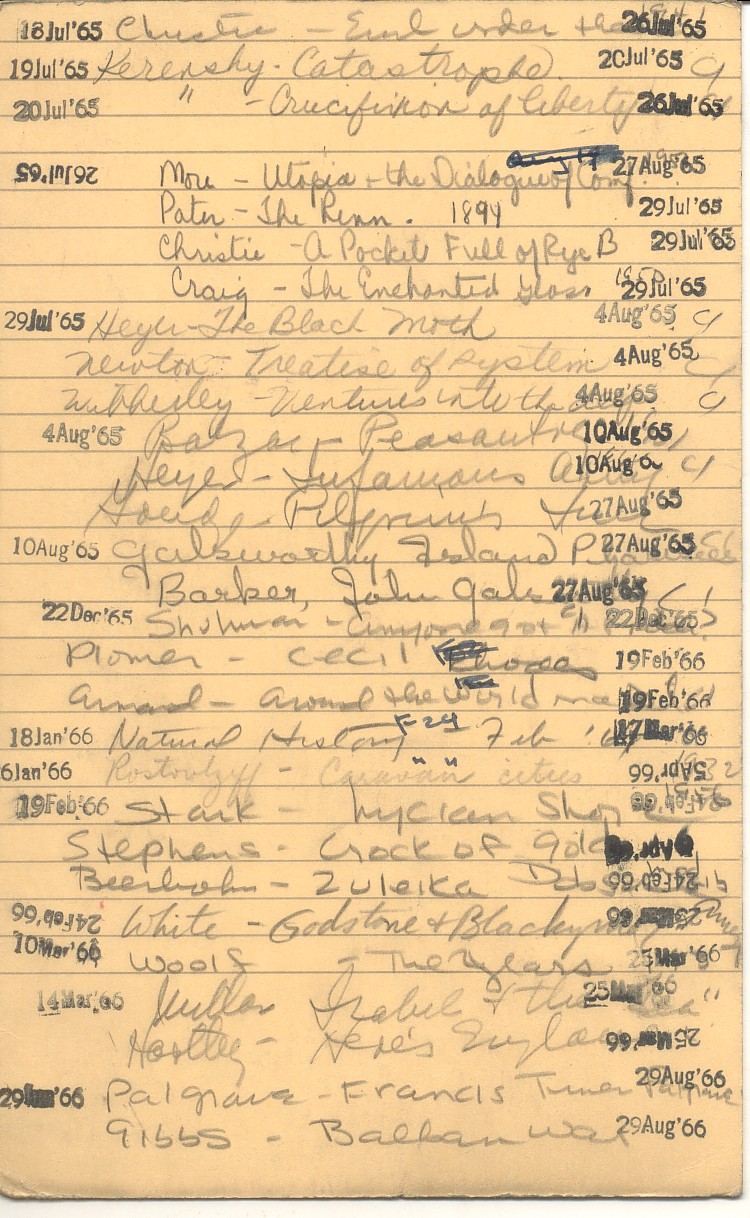 18 Jul '65 Christie - Evil under the 26 Jul '65
19 Jul '65 Kerensky - Catastrophe. 20 Jul '65 C
20 Jul '65 " - Crucifixion of Liberty 26 Jul '65
26 Jul '65 More - Utopia + the Dialogue of Comf. 27 Aug '65
Pater - The Renn. 1894 29 Jul '65
Christie - A Pocket Full of Rye B 29 Jul '65
Craig - The Enchanted Glass 1950 29 Jul '65
29 Jul '65 Heyer - The Black Moth 4 Aug '65 C
Newton - Treatise of System 4 Aug '65
Wibberley - Ventures into the deep 4 Aug '65 C
4 Aug '65 Balzac - Peasantry 10 Aug '65
Heyer - Infamous Army 10 Aug '6
Goudge - Pilgrim's Inn 27 Aug '65
10 Aug '65 Galsworthy Island 27 Aug '65
Barker, John Gale 27 Aug '65
22 Dec '65 Shulman - Anyone got 22 Dec '65
Plomer - Cecil Rhodes 19 Feb '66
Armand - Around the World 19 Feb '66
18 Jan '66 Natural History F24 Feb 17 Mar '66
6 Jan '66 Rostovtzeff - Caravan cities 5 Apr '66
19 Feb '66 Stark - Lycian Shore 24 Feb '66
Stephens - Crock of Gold Apr
Beerbohm - Zuleika Dobson 24 Feb '66
24 Feb '66 White - Godstone & Blackymor Mar '66
10 Mar '66 Woolf - The Years 25 Mar '66
14 Mar '66 Isabel & the Sea" 25 Mar '66
Hartley - Here's England 25 Mar '66
29 Aug '66
29 Jun '66 Palgrave - Francis Turner Palgrave
Gibbs - Balkan War 29 Aug '66